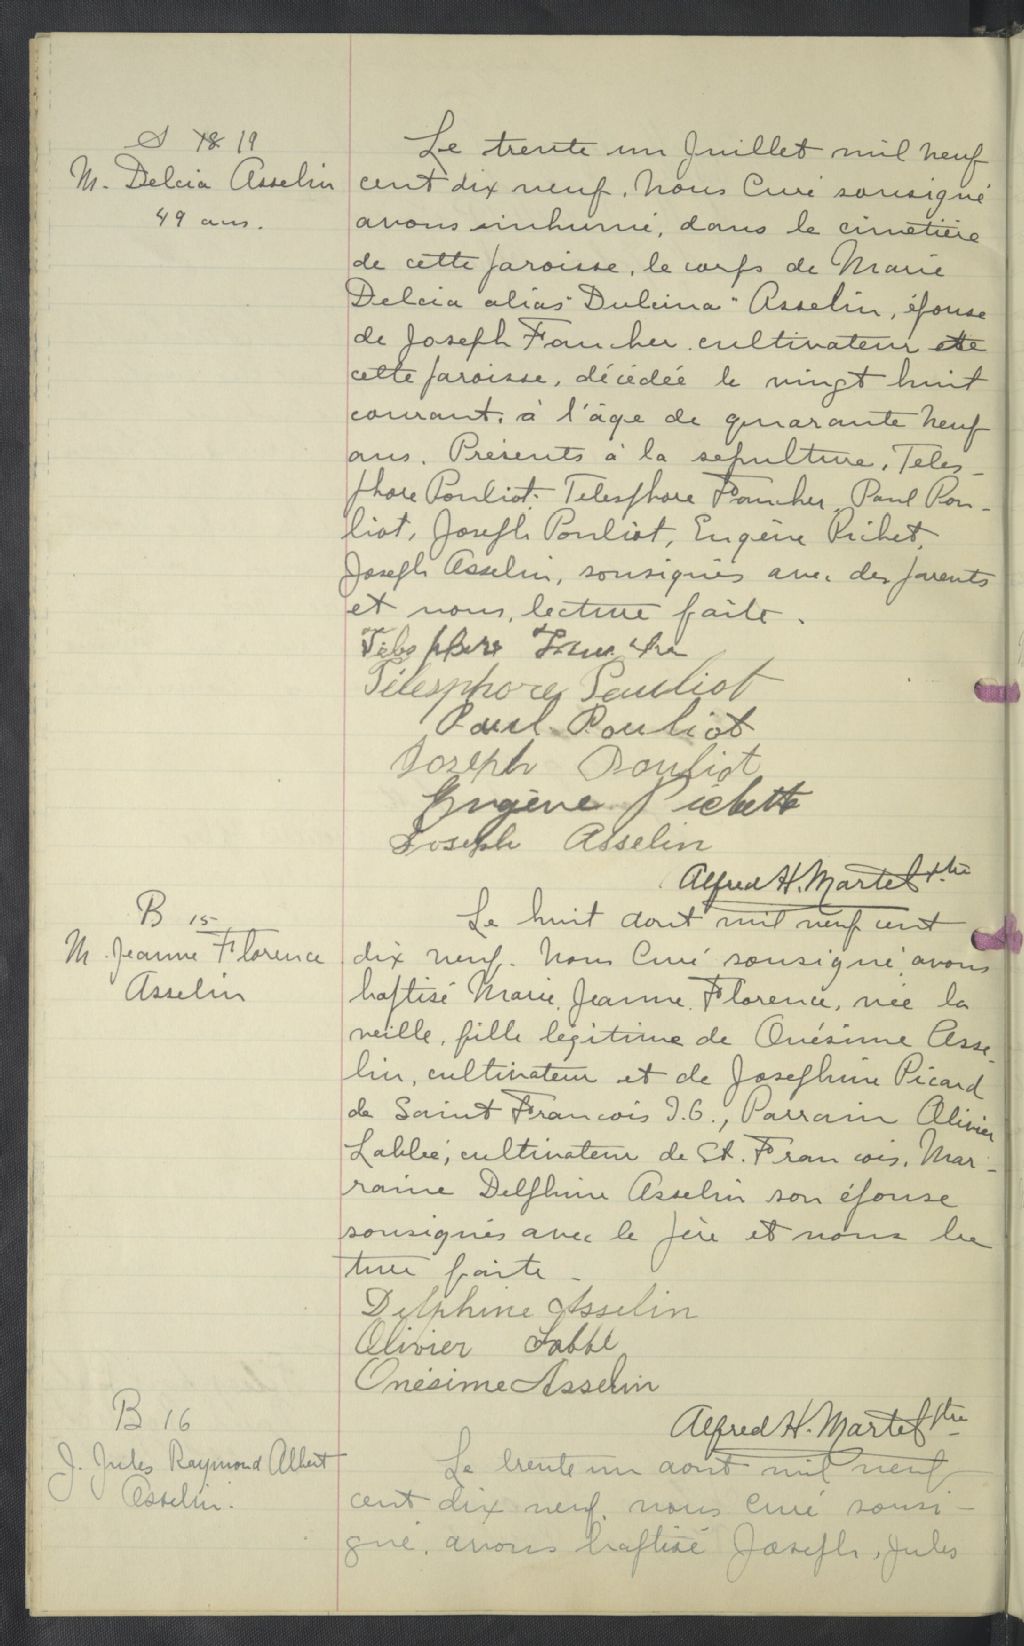 S 18 19
M. Delcia Asselin
49 ans.
Le trente un Juillet mil neuf
cent dix neuf, Nous Curé sousigné
avons inhumé, dans le cimetière
de cette paroisse, le corps de Marie
Delcia alias "Dulcina" Asselin, épouse
de Joseph Faucher cultivateur de
cette paroisse, décédée le vingt huit
courant, à l'âge de quarante neuf
ans. Présents à la sépulture, Teles-
phore Pouliot, Telesphore Faucher, Paul Pou-
liot, Joseph Pouliot, Eugène Pichet,
Joseph Asselin, sousignés avec des parents
et nous, lecture faite.
Telesphore Faucher
Télesphore Pouliot
Paul Pouliot
Joseph Pouliot
Eugène Pichette
Joseph Asselin
Alfred H. Martel ptre
B 15
M. Jeanne Florence
Asselin
Le huit aout mil neuf cent
dix neuf. Nous Curé sousigné, avons
baptisé Marie, Jeanne, Florence, née la
veille, fille légitime de Onésime Asse-
lin, cultivateur et de Josephine Picard
de Saint François I.O., Parrain Olivier
Labbé, cultivateur de St. François, Mar-
raine Delphine Asselin son épouse
sousignés avec le père et nous lec
ture faite -
Delphine Asselin
Olivier Labbé
Onésime Asselin
Alfred H. Martel ptre
B 16
J. Jules Raymond Albert
Asselin.
Le trente un aout mil neuf
cent dix neuf, nous Curé sousi-
gné, avons baptisé Joseph, Jules